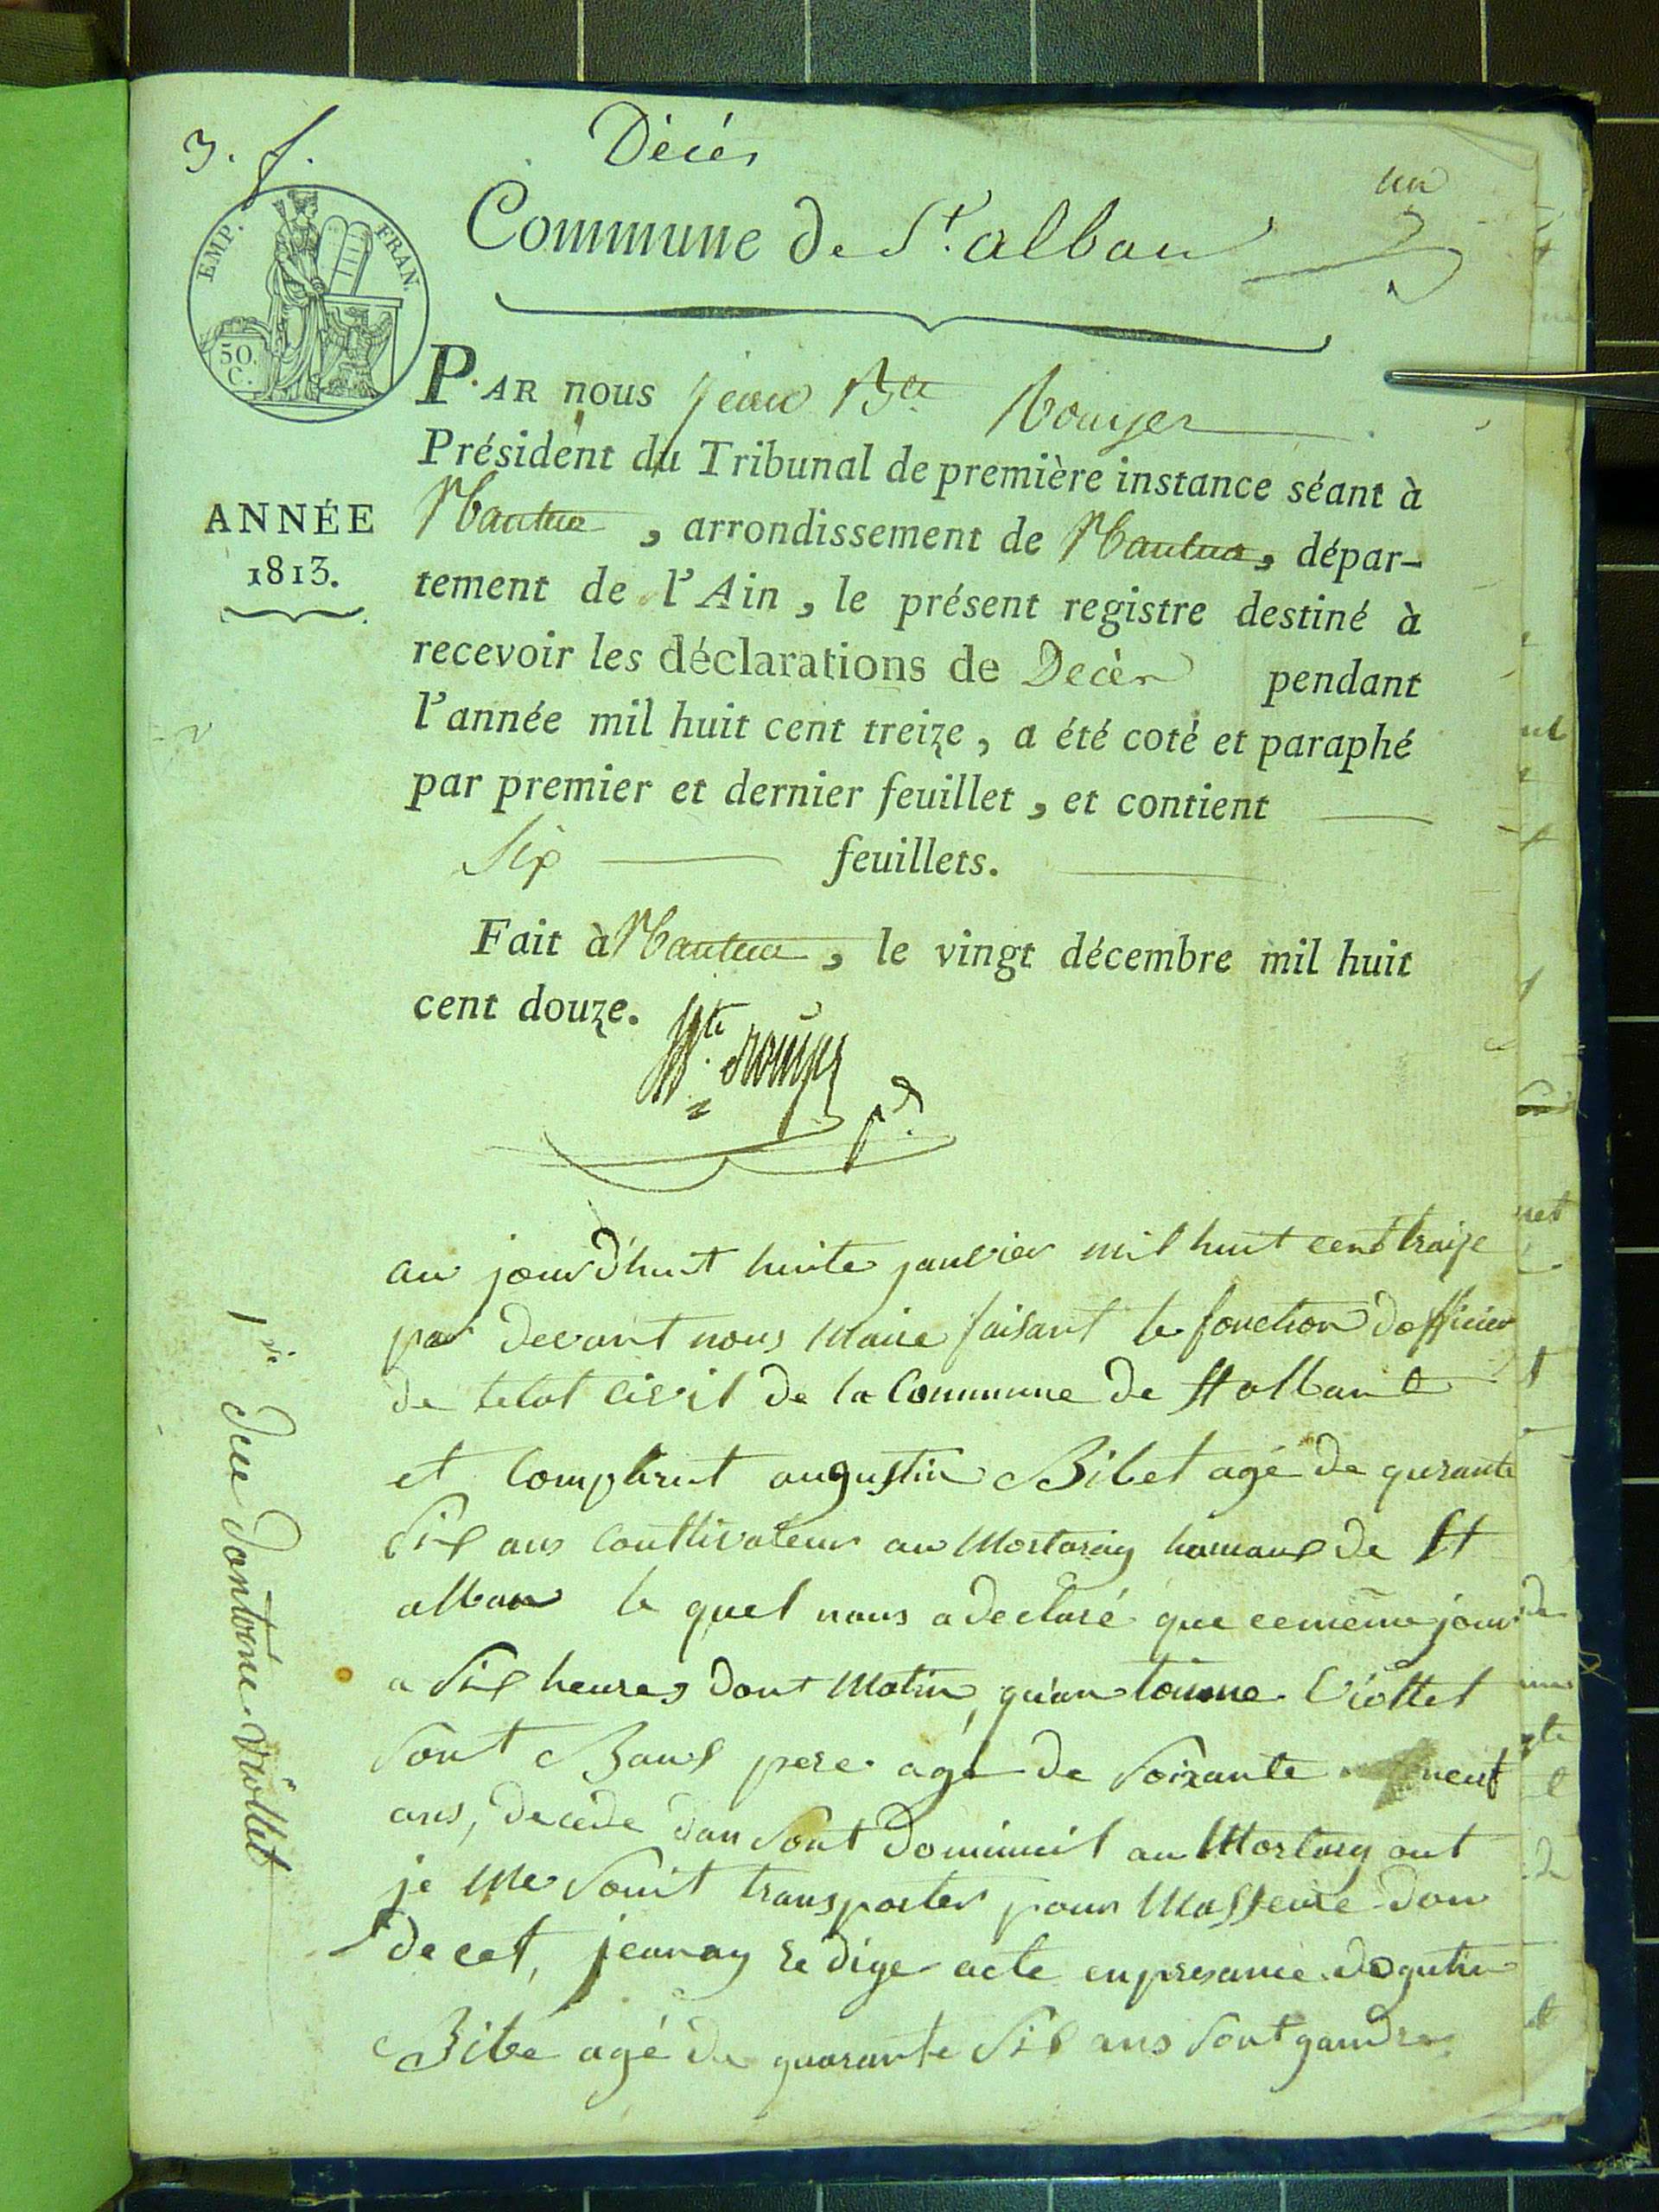 3. f.
Décés
un
Commune de St. alban
EMP. FRAN.
50.
C.
PAR nous jean Bte Rouyer
Président du Tribunal de première instance séant à
ANNÉE
1813.
Nantua, arrondissement de Nantua, dépar-
tement de l'Ain, le présent registre destiné à
recevoir les déclarations de Decès pendant
l'année mil huit cent treize, a été coté et paraphé
par premier et dernier feuillet, et contient
Six feuillets.
Fait à Nantua, le vingt décembre mil huit
cent douze.
Bte. Rouyer
pdt.
au jourd'huit huite janvier mil huit cent traize
par devant nous Maire faisant le fonction dofficier
de letat civil de la Commune de St alban
et Comparut augustin Bilet agé de qurante
Six ans Coultivateur au Mortaray hamaux de St
alban le quel nous a declaré que ce meme jour
a Six heures dont Matin, qu'antoinne Viollet
Sont Baux pere agé de Soixante neuf
ans, decede dan Sont domimcil au Mortary ont
je me Souit transporter pour Massure don
de cet, jeunay redige acte enpresance dogutin
Bile agé de quarante Six ans Sont gandre
1re
du dantoine viollet